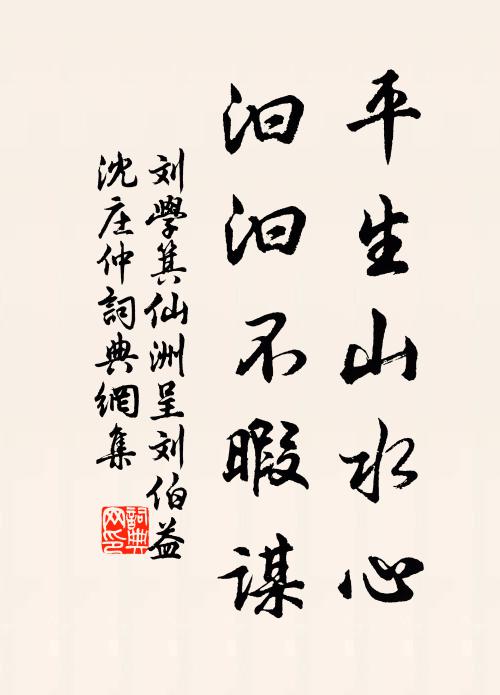 平生山水心
汩汩不暇谋
刘學箕仙洲呈刘伯益
沈庄仲詞典網集
詞典网印